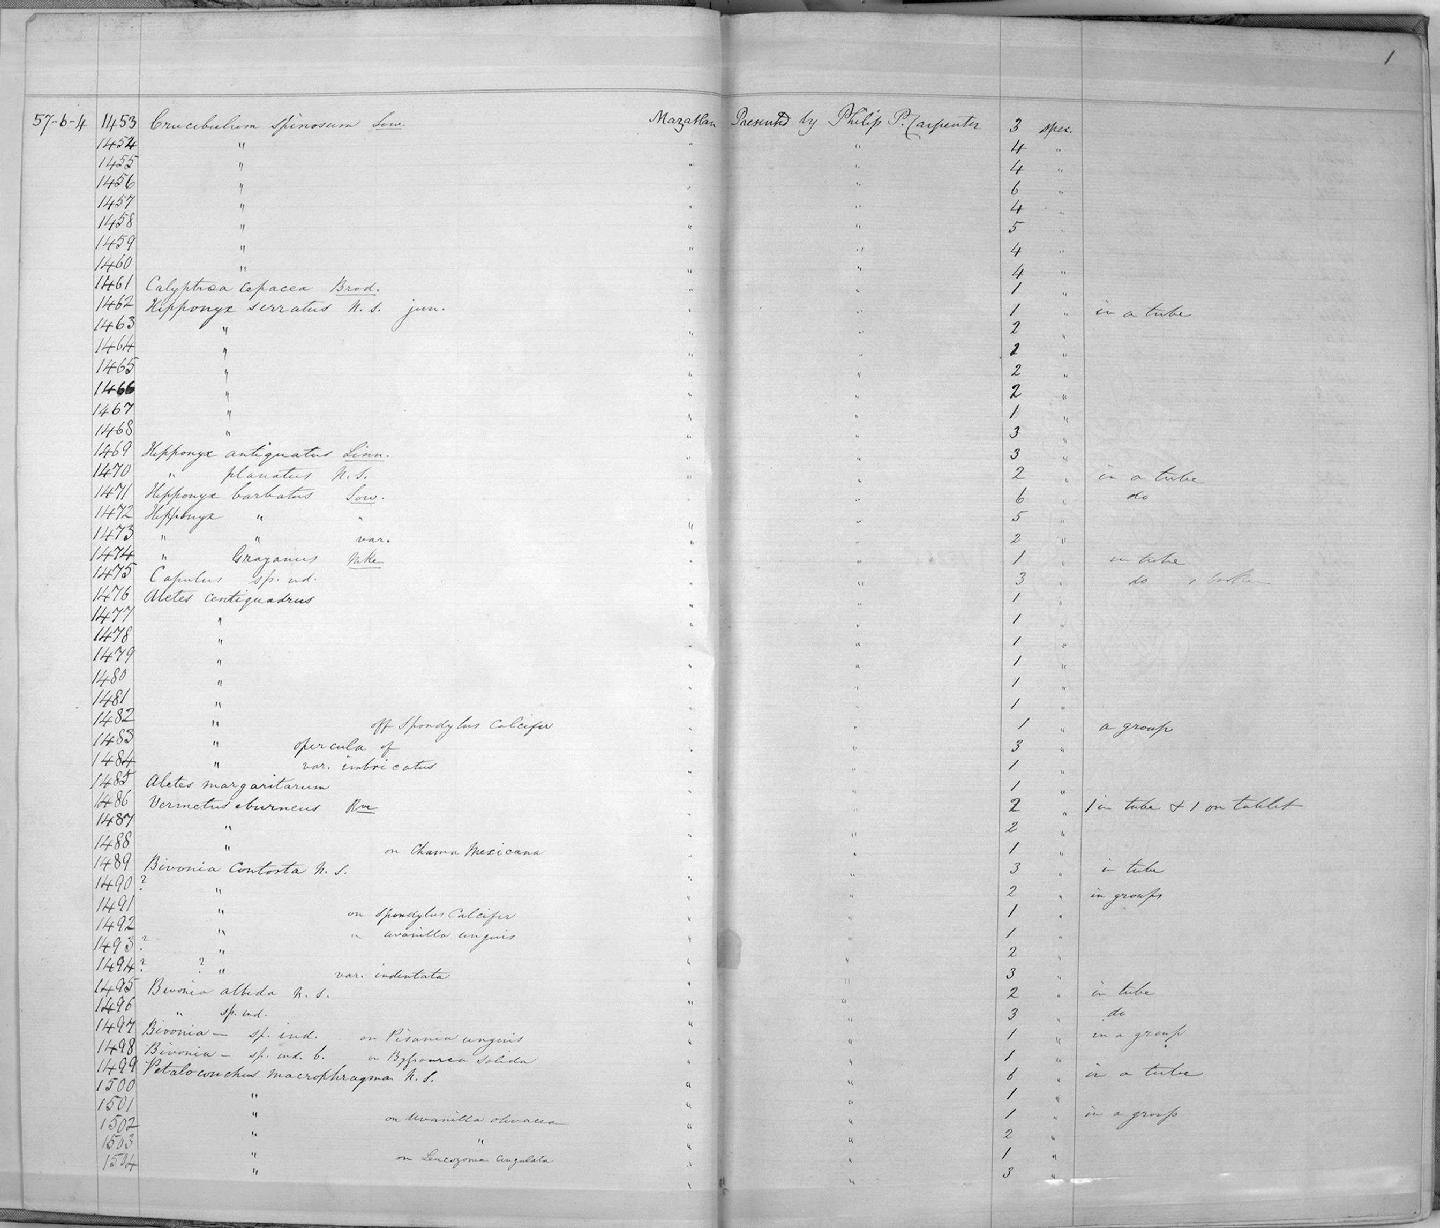 1
57-6-4 1453 Crucibulum spinosum Sow. Mazatlan Presented by Philip P. Carpenter 3 spec.
1454 " " " 4 "
1455 " " " 4 "
1456 " " " 6 "
1457 " " " 4 "
1458 " " " 5 "
1459 " " " 4 "
1460 " " " 4 "
1461 Calyptræa cepacea Brod. " " 1 "
1462 Hipponyx serratus N. S. jun. " " 1 " in a tube
1463 " " " 2 "
1464 " " " 2 "
1465 " " " 2 "
1466 " " " 2 "
1467 " " " 1 "
1468 " " " 3 "
1469 Hipponyx antiquatus Linn. " " 3 "
1470 " planatus N. S. " " 2 " in a tube
1471 Hipponyx barbatus Sow. " " 6 " do
1472 Hipponyx " " " " 5 "
1473 " " var. " " 2 "
1474 " Grayanus Mke " " 1 " in tube
1475 Capulus sp. ind. " " 3 " do
1476 Aletes centiquadrus " " 1 "
1477 " " " 1 "
1478 " " " 1 "
1479 " " " 1 "
1480 " " " 1 "
1481 " " " 1 "
1482 " off Spondylus Calcifer " " 1 " a group
1483 " opercula of " " 3 "
1484 " var. imbricatus " " 1 "
1485 Aletes margaritarum " " 1 "
1486 Vermetus eburneus Rve " " 2 " 1 in tube & 1 on tablet
1487 " " " 2 "
1488 " on Chama Mexicana " " 1 "
1489 Bivonia Contorta N. S. " " 3 " in tube
1490 ? " " " 2 " in groups
1491 " on Spondylus Calcifer " " 1 "
1492 " " uvanilla unguis " " 1 "
1493 ? " " " 2 "
1494 ? ? " var. indentata " " 3 "
1495 Bivonia albida N. S. " " 2 " in tube
1496 " sp. ind. " " 3 " do
1497 Bivonia — sp. ind. on unguis " " 1 " in a group
1498 Bivonia — sp. ind. b. on solida " " 1 "
1499 Petaloconchus macrophragma N. S. " " 6 " in a tube
1500 " " " 1 "
1501 " on Uvanilla olivacea " " 1 " in a group
1502 " " " " 2 "
1503 " on Leucozonia cingulata " " 1 "
1504 " " " 3 "